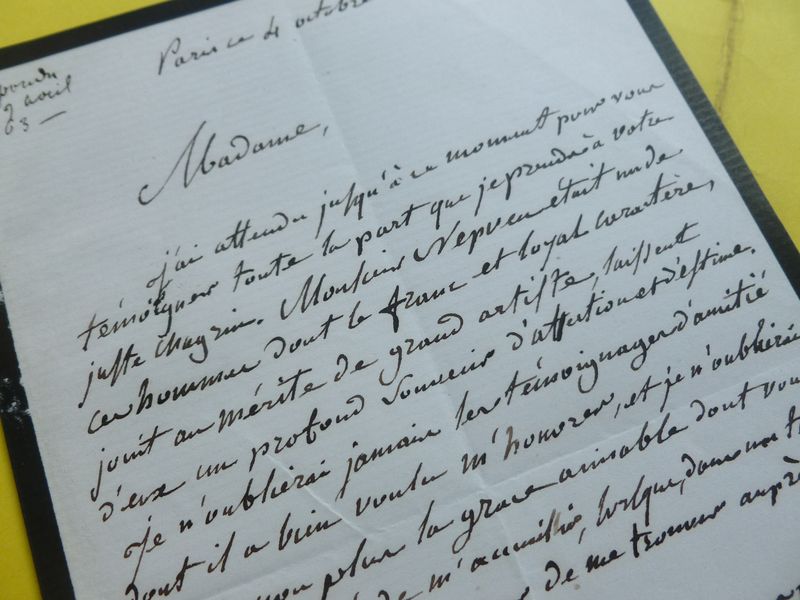 Paris ce 4 octobre
avril
63 —
Madame,
J'ai attendu jusqu'à ce moment pour vous
témoigner toute la part que je prends à votre
juste chagrin. Monsieur Nepveu était un de
ces hommes dont le franc et loyal caractère,
joint au mérite de grand artiste, laissent
d'eux un profond souvenir d'affection et d'estime.
Je n'oublierai jamais les témoignages d'amitié
dont il a bien voulu m'honorer, et je n'oublierai
non plus la grace aimable dont vous
de m'accueillir, lorsque, dans un
de me trouver auprès